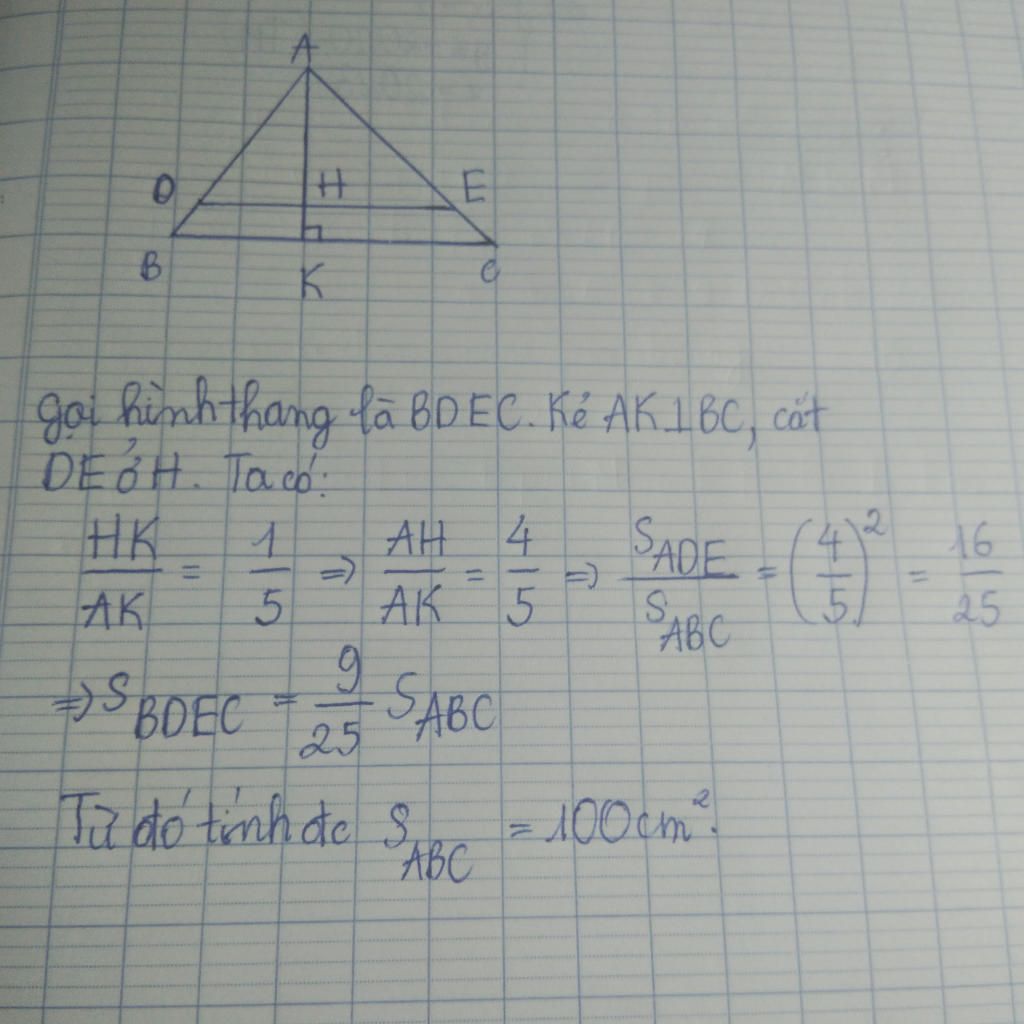 A
D H E
B K C
gọi hình thang là BDEC. Kẻ AK⊥BC, cắt
DE ở H. Ta có:
HK/AK = 1/5 => AH/AK = 4/5 => S_ADE/S_ABC = (4/5)² = 16/25
=> S_BDEC = 9/25 S_ABC
Từ đó tính đc S_ABC = 100cm².